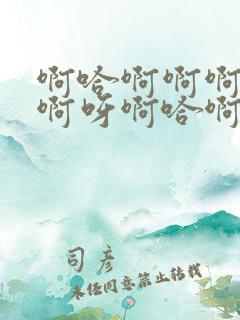 啊哈啊啊啊
啊呀啊哈啊
司彦
未经同意禁止转载